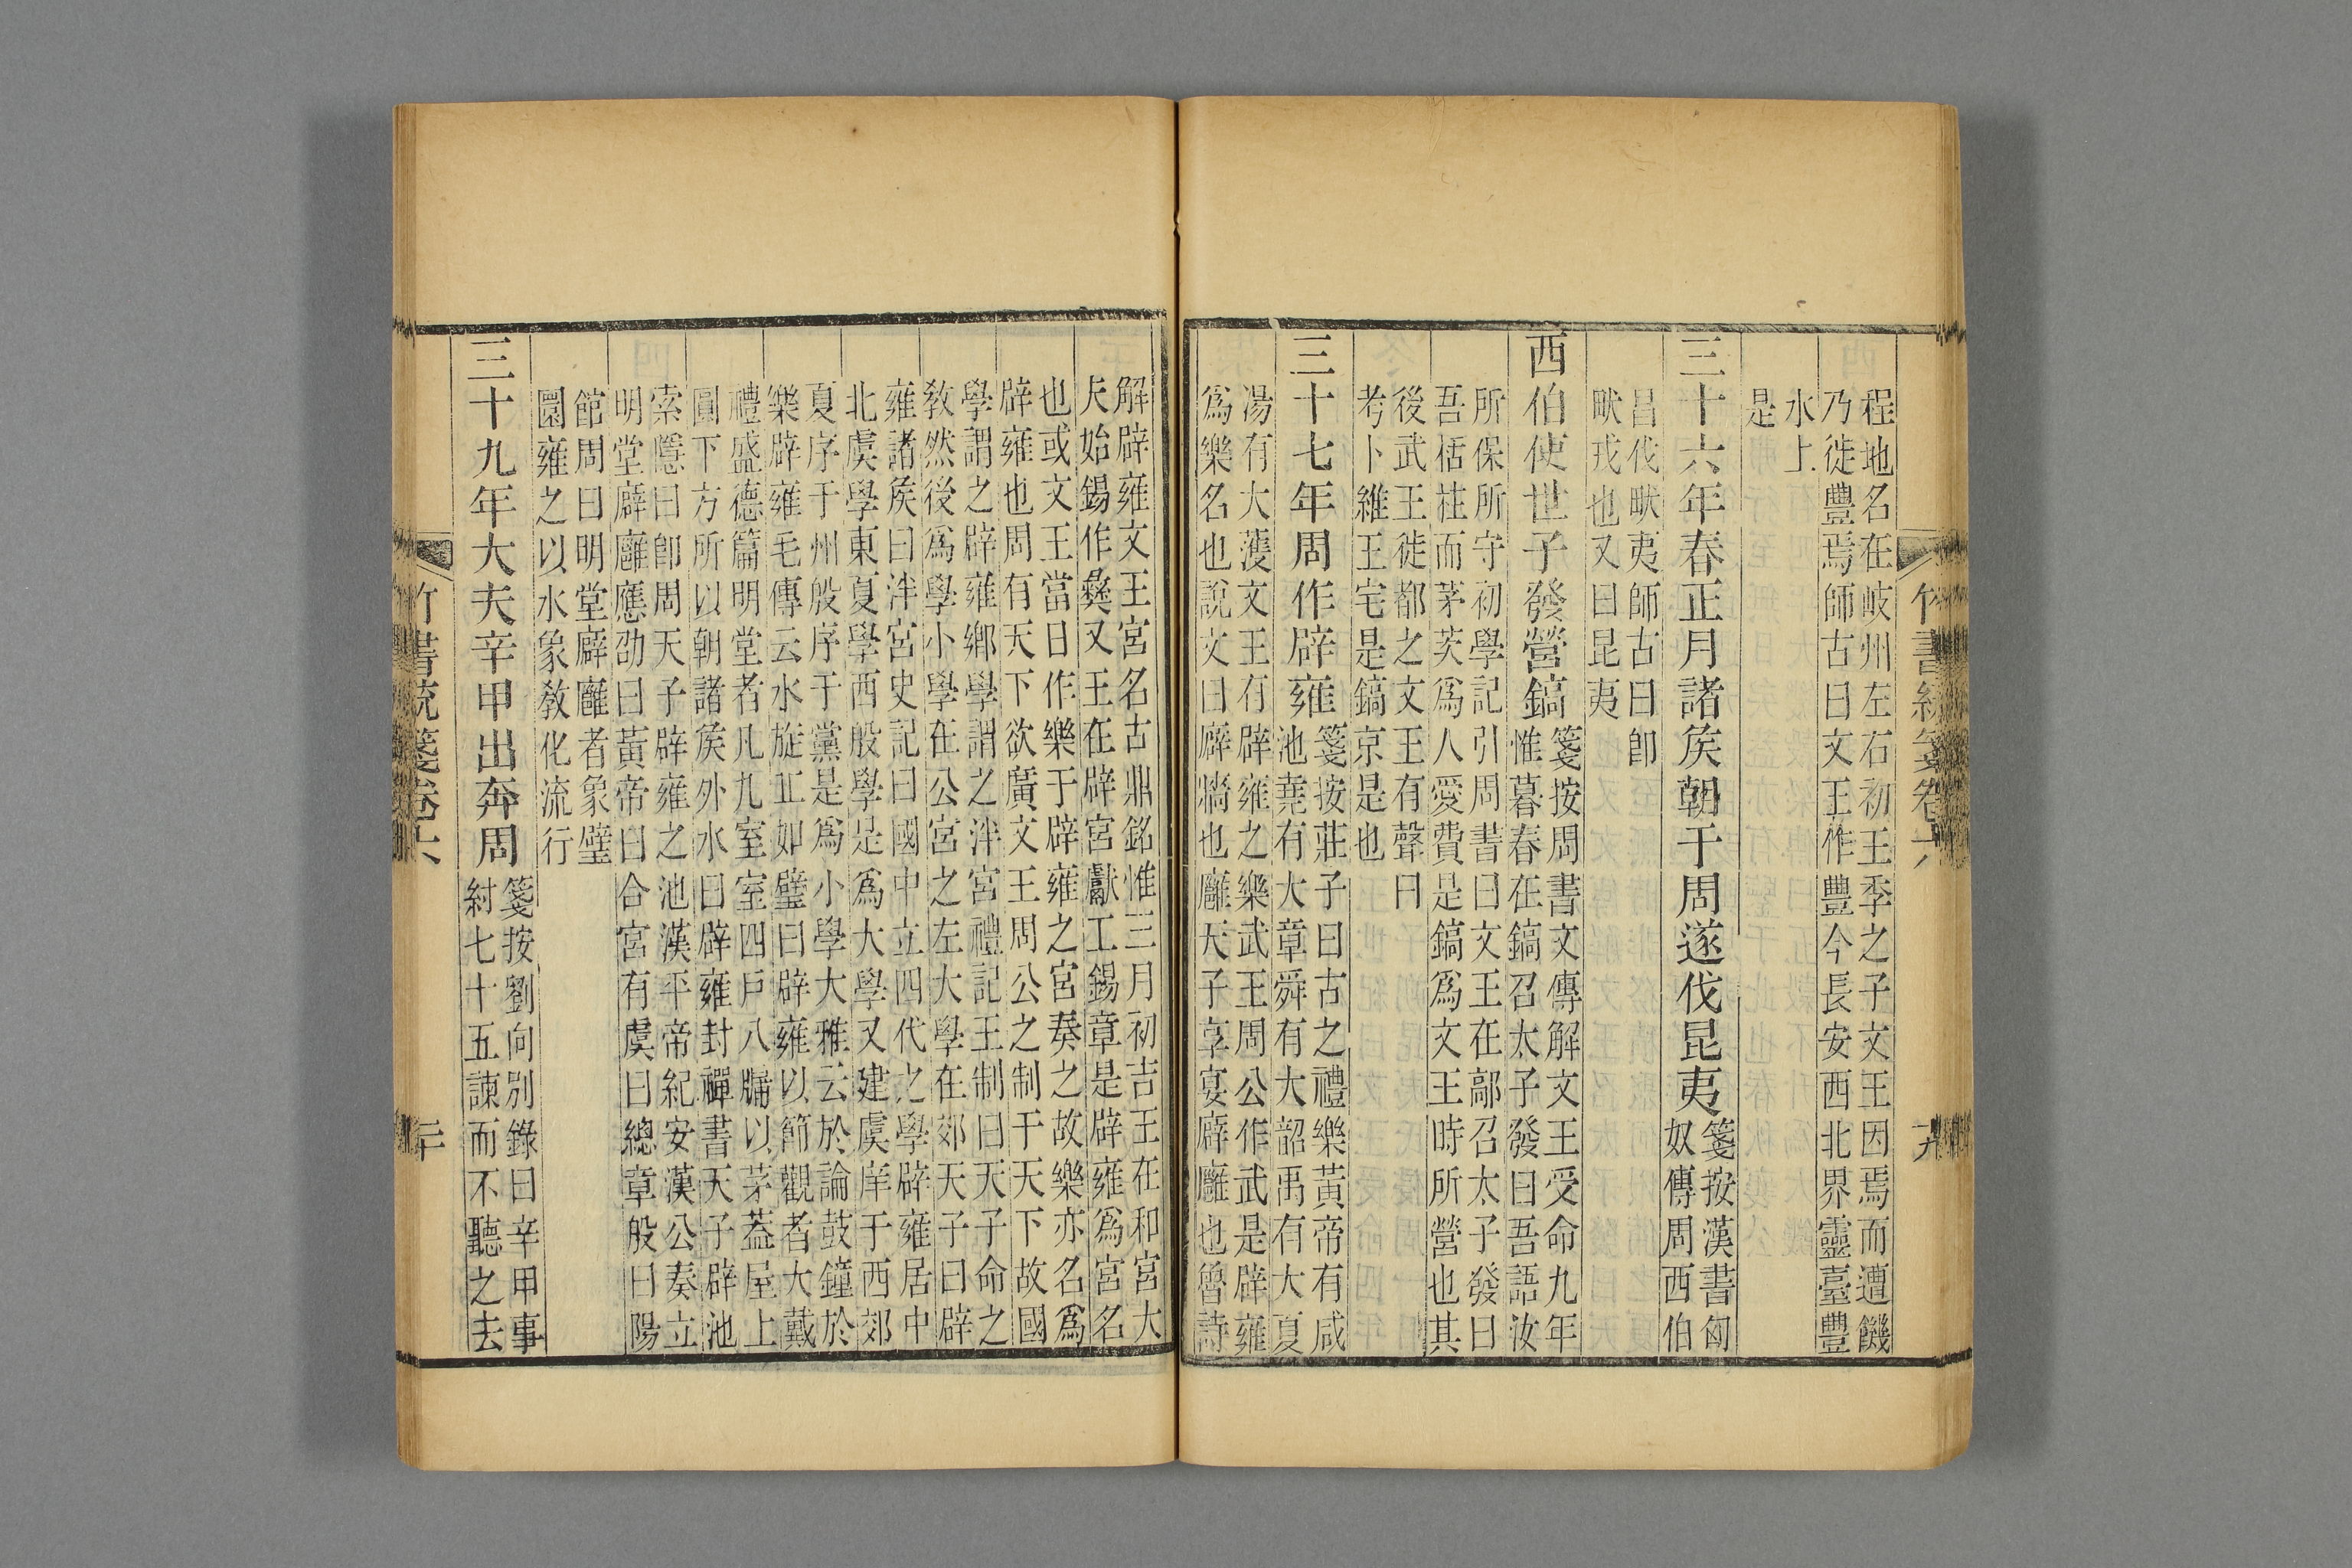 竹書統箋卷六
十九
程地名在岐州左右初王季之子文王因焉而遭饑
乃徙豐焉師古曰文王作豐今長安西北界靈臺豐
水上
是
三十六年春正月諸矦朝于周遂伐昆夷
箋按漢書匈
奴傳周西伯
昌伐畎夷師古曰卽
畎戎也又曰昆夷
西伯使世子發營鎬
箋按周書文傳解文王受命九年
惟暮春在鎬召太子發曰吾語汝
所保所守初學記引周書曰文王在鄗召太子發曰
吾栝柱而茅茨爲人愛費是鎬爲文王時所營也其
後武王徙都之文王有聲曰
考卜維王宅是鎬京是也
三十七年周作辟雍
箋按莊子曰古之禮樂黃帝有咸
池堯有大章舜有大韶禹有大夏
湯有大濩文王有辟雍之樂武王周公作武是辟雍
爲樂名也說文曰廦牆也廱天子享宴廦廱也魯詩
解辟雍文王宮名古鼎銘惟三月初吉王在和宮大
夫始錫作彝又王在辟宮獻工錫章是辟雍爲宮名
也或文王當日作樂于辟雍之宮奏之故樂亦名爲
辟雍也周有天下欲廣文王周公之制于天下故國
學謂之辟雍鄉學謂之泮宮禮記王制曰天子命之
敎然後爲學小學在公宮之左大學在郊天子曰辟
雍諸矦曰泮宮史記曰國中立四代之學辟雍居中
北虞學東夏學西殷學是爲大學又建虞庠于西郊
夏序于州殷序于黨是爲小學大雅云於論鼓鐘於
樂辟雍毛傳云水旋丘如璧曰辟雍以節觀者大戴
禮盛德篇明堂者凡九室室四戶八牖以茅葢屋上
圓下方所以朝諸矦外水曰辟雍封禪書天子辟池
索隱曰卽周天子辟雍之池漢平帝紀安漢公奏立
明堂廦廱應劭曰黃帝曰合宮有虞曰總章殷曰陽
館周曰明堂廦廱者象璧
圜雍之以水象敎化流行
三十九年大夫辛甲出奔周
箋按劉向別錄曰辛甲事
紂七十五諫而不聽之去
竹書統箋卷六
二十